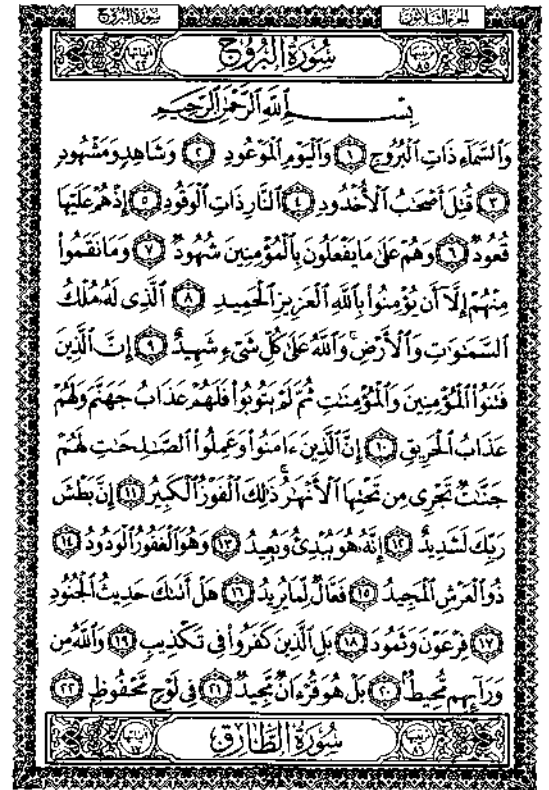 سُورَةُ البُرُوجِ الجزء الثلاثون
ترتيبها ٨٥ سُورَةُ البُرُوجِ آياتها ٢٢
بِسْمِ ٱللَّهِ ٱلرَّحْمَٰنِ ٱلرَّحِيمِ
وَٱلسَّمَآءِ ذَاتِ ٱلْبُرُوجِ ١ وَٱلْيَوْمِ ٱلْمَوْعُودِ ٢ وَشَاهِدٍ وَمَشْهُودٍ
٣ قُتِلَ أَصْحَٰبُ ٱلْأُخْدُودِ ٤ ٱلنَّارِ ذَاتِ ٱلْوَقُودِ ٥ إِذْ هُمْ عَلَيْهَا
قُعُودٌ ٦ وَهُمْ عَلَىٰ مَا يَفْعَلُونَ بِٱلْمُؤْمِنِينَ شُهُودٌ ٧ وَمَا نَقَمُوا۟
مِنْهُمْ إِلَّآ أَن يُؤْمِنُوا۟ بِٱللَّهِ ٱلْعَزِيزِ ٱلْحَمِيدِ ٨ ٱلَّذِى لَهُۥ مُلْكُ
ٱلسَّمَٰوَٰتِ وَٱلْأَرْضِ ۚ وَٱللَّهُ عَلَىٰ كُلِّ شَىْءٍ شَهِيدٌ ٩ إِنَّ ٱلَّذِينَ
فَتَنُوا۟ ٱلْمُؤْمِنِينَ وَٱلْمُؤْمِنَٰتِ ثُمَّ لَمْ يَتُوبُوا۟ فَلَهُمْ عَذَابُ جَهَنَّمَ وَلَهُمْ
عَذَابُ ٱلْحَرِيقِ ١٠ إِنَّ ٱلَّذِينَ ءَامَنُوا۟ وَعَمِلُوا۟ ٱلصَّٰلِحَٰتِ لَهُمْ
جَنَّٰتٌ تَجْرِى مِن تَحْتِهَا ٱلْأَنْهَٰرُ ۚ ذَٰلِكَ ٱلْفَوْزُ ٱلْكَبِيرُ ١١ إِنَّ بَطْشَ
رَبِّكَ لَشَدِيدٌ ١٢ إِنَّهُۥ هُوَ يُبْدِئُ وَيُعِيدُ ١٣ وَهُوَ ٱلْغَفُورُ ٱلْوَدُودُ ١٤
ذُو ٱلْعَرْشِ ٱلْمَجِيدُ ١٥ فَعَّالٌ لِّمَا يُرِيدُ ١٦ هَلْ أَتَىٰكَ حَدِيثُ ٱلْجُنُودِ
١٧ فِرْعَوْنَ وَثَمُودَ ١٨ بَلِ ٱلَّذِينَ كَفَرُوا۟ فِى تَكْذِيبٍ ١٩ وَٱللَّهُ مِن
وَرَآئِهِم مُّحِيطٌۢ ٢٠ بَلْ هُوَ قُرْءَانٌ مَّجِيدٌ ٢١ فِى لَوْحٍ مَّحْفُوظٍۭ ٢٢
ترتيبها ٨٦ سُورَةُ الطَّارِقِ آياتها ١٧